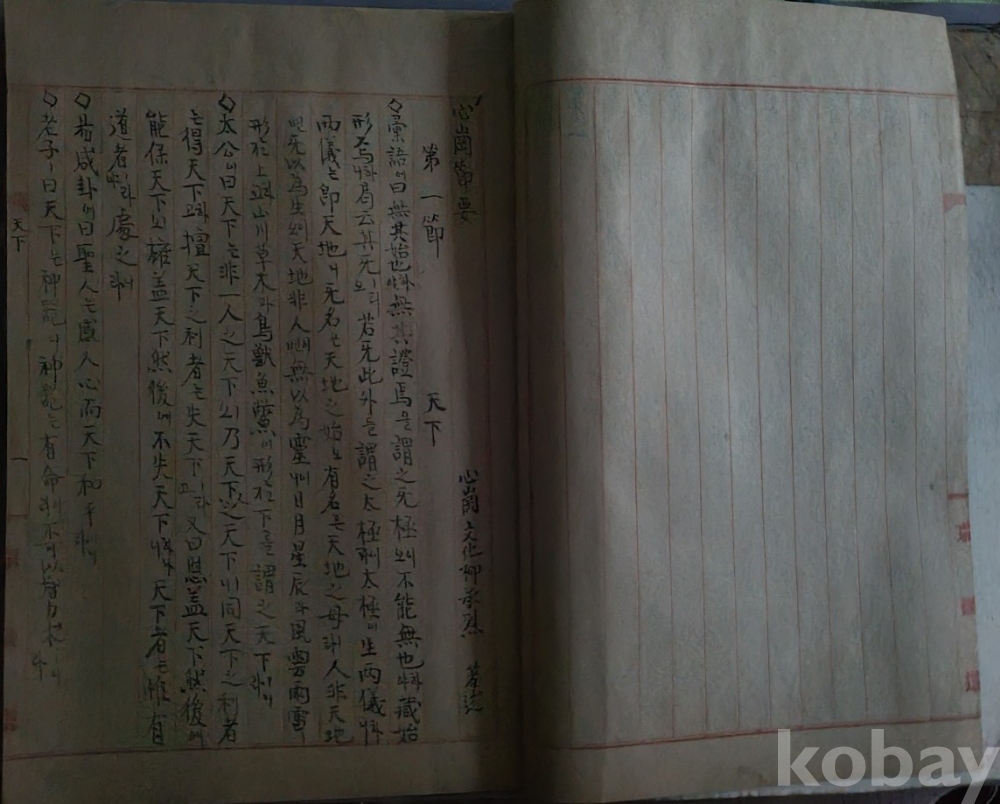 心崗節要
心崗文化柳承烈 著述
第一節 天下
◇彙語에曰無其始也하며無其證焉을謂之无極이오不能無也하며藏始
形焉하며局云其无이리오若无此外를謂之太極이라太極이生兩儀하며
兩儀는卽天地니无名은天地之始오有名은天地之母라人非天地
면无以爲生이오天地非人이면無以爲靈이라日月星辰과風雲雨雪
形於上과山川草木과鳥獸魚鱉이形於下를謂之天下라
◇太公이曰天下는非一人之天下라乃天下之天下니同天下之利者
는得天下고擅天下之利者는失天下라又曰慈盖天下然後에
能保天下고 盖天下然後에不失天下며天下者는惟有
道者라處之라
◇易咸卦에曰聖人은感人心而天下和平이라
◇老子ㅣ曰天下는神器니神器는有命이라不可以
天下 一
kobay